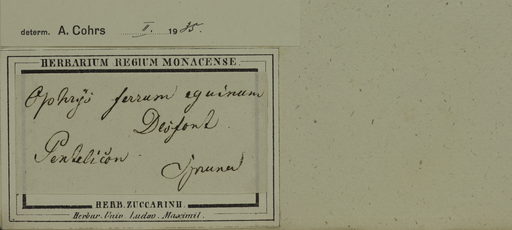 determ. A. Cohrs II. 1935.
HERBARIUM REGIUM MONACENSE.
Ophrys ferrum equinum
Desfont.
Pentelicon.
Spruner
HERB. ZUCCARINII.
Herbar. Univ. Ludov. Maximil.